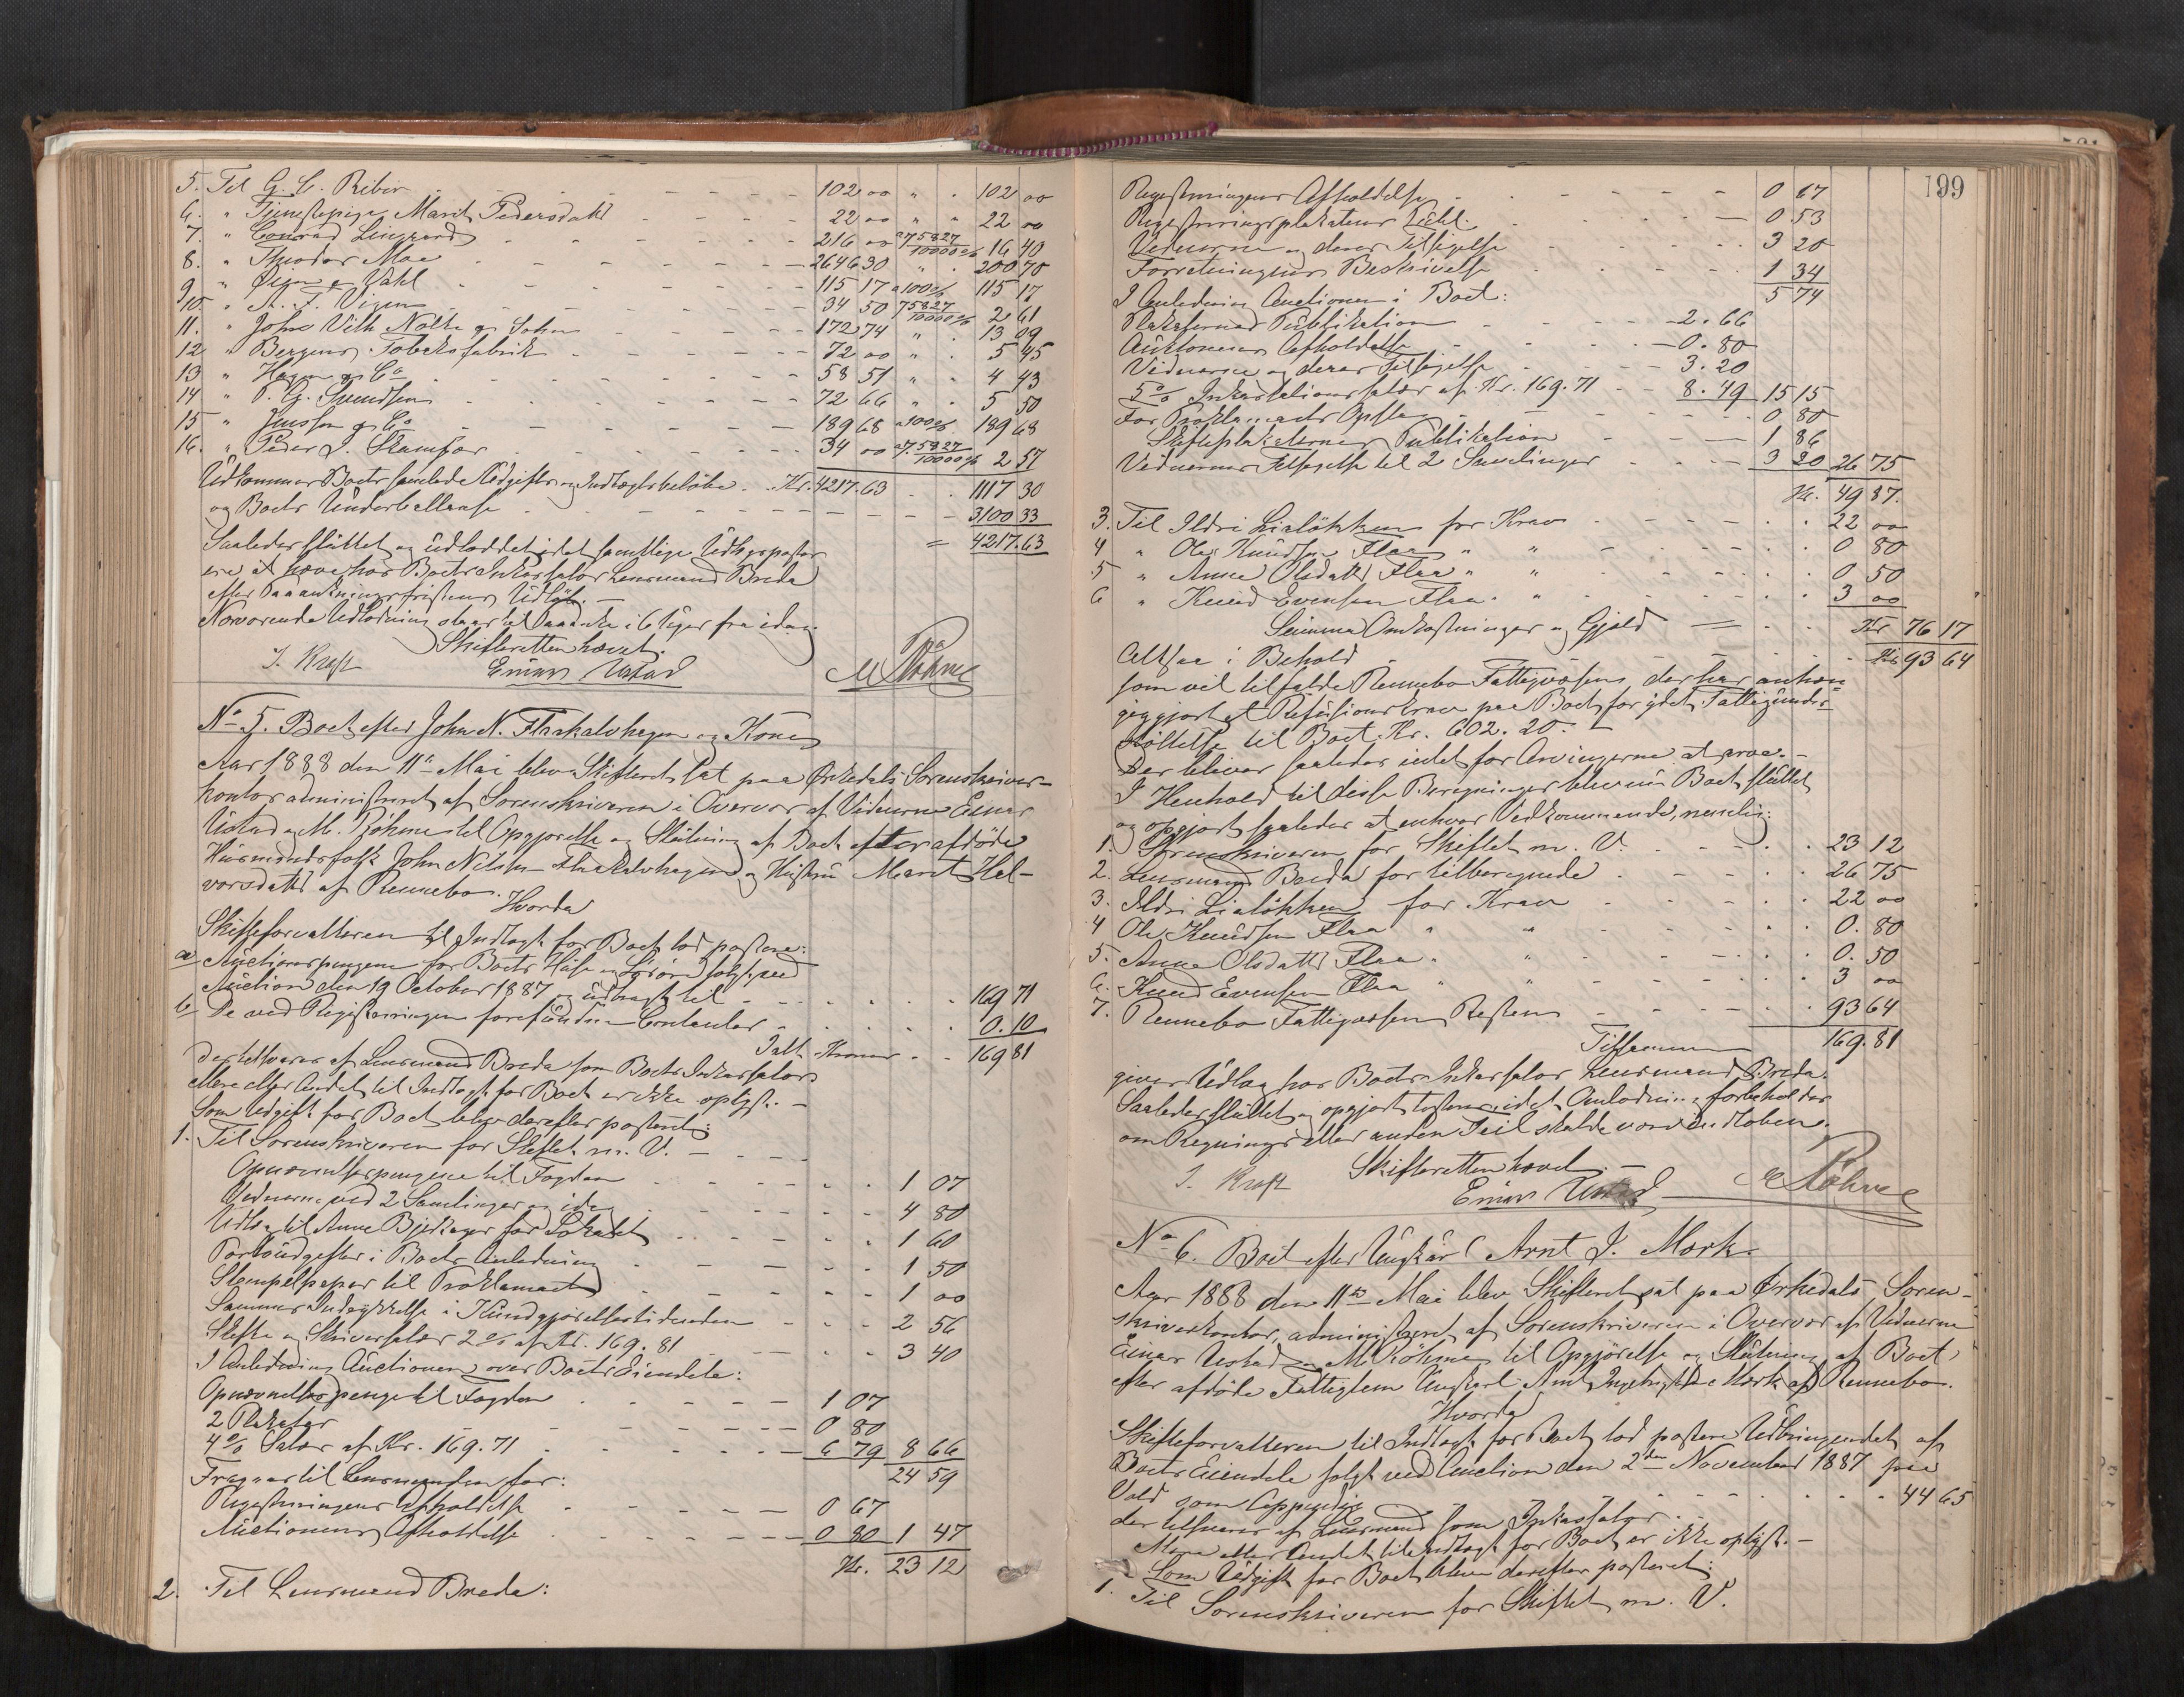 5. Til G. C. Riber - - - 102 00 " . 102 00
6. " Tjenestepige Marit Pedersdatt - - - 22 00 " " 22 00
7. " Conrad Lingaard - - - 216 00 a 7 5827/10000 % 16 40
8. " Theodor Moe - - - 2646 30 " . 200 70
9. " Øien & Wahl - - - 115 17 a 100 % 115 17
10. " A. F. Vigen - - - 34 50 7 5827/10000 % 2 61
11. " Johs Vilh Nolte og Sohn - - - 172 74 " . 13 09
12 " Bergens Tobaksfabrik - - - 72 00 " . 5 45
13 " Hagen & Co - - - 58 51 " . 4 43
14 " P. G. Svendsen - - - 72 66 " . 5 50
15 " Jensson & Co - - - 189 68 a 100 % 189 68
16. " Peder J. Stamfor - - - 34 00 a 7. 5827/10000 % 2 57
Udkommer Boets samlede Udgifts og Indtægtsbeløbe . Kr. 4217.63 . . 1117 30
og Boets Underballanse - - - 3100 33
= 4217.63
Saaledes sluttet og udloddet idet samtlige Udlægsposter
ere at hæve hos Boets Inkassator Lensmand Breda
efter Paaankningsfristens Udløb. —
Nærværende Udlodning staar til Paaanke i 6 Uger fra idag.
Skifteretten hævet.
J. Kraft Einar Ustad M Röhme
No 5. Boet efter John N. Flaakalvhagen og Kone
Aar 1888 den 11te Mai blev Skifteret sat paa Ørkedals Sorenskriver-
kontor administreret af Sorenskriveren i Overvær af Vidnerne Einar
Ustad og M. Röhme til Opgjørelse og Slutning af Boet efter afdøde
Husmandsfolk John Nilsen Flaakalvhagen og Hustru Marit Hal-
vorsdatt af Rennebo.
Hvorda
Skifteforvalteren til Indtægt for Boet lod postere:
a Auctionspengene for Boets Huse og Løsøre solgt ved
Auction den 19 October 1887 og udbragt til - - - 169 71
b De ved Registreringen forefundne Contanter - - - 0.10
Ialt Kroner . . 169 81
der tilsvares af Lensmand Breda som Boets Inkassator.
Mere eller Andet til Indtægt for Boet er ikke oplyst. —
Som Udgift for Boet blev derefter posteret:
1. Til Sorenskriveren for Skiftet m. V. - - -
Opnævnelsespengene til Fogden - - - 1 07
Vidnerne ved 2 Samlinger og idag - - - 4 80
Udlæg til Anne Bjerkager for Lokalet - - - 1 60
Portoudgifter i Boets Anledning - - - 1 50
Stempelpapir til Proklamaet - - - 1 00
Sammes Indrykkelse i Kundgjørelsestidenden - - - 2 56
Skifte og Skriversalær 2 % af Kr. 169.81 - - - 3 40
I Anledning Auctionen over Boets Eiendele:
Opnævnelsespenge til Fogden - - - 1 07
2 Plakater - - - 0 80
4 % Salær af Kr. 169.71 - - - 6 79 8 66
24 59
Fragaar til Lensmanden for:
Registreringens Afholdelse - - - 0 67
Auctionens Afholdelse - - - 0 80 1 47
Kr. 23 12
2. Til Lensmand Breda:
199
Registreringens Afholdelse - - - 0 67
Registreringsplakatens - - - 0 53
Vidnerne og deres Tilsigelse - - - 3 20
Forretningens Beskrivelse - - - 1 34
5 74
I Anledning Auctionen i Boet:
Plakaternes Publikation - - - 2.66
Auktionens Afholdelse - - - 0.80
Vidnerne og deres Tilsigelse - - - 3.20
5 % Inkassationssalær af Kr. 169.71 - - 8.49 15 15
For Proklamaets Opslag - - - 0 80
Skifteplakaternes Publikation - - - 1 86
Vidnernes Tilsigelse til 2 Samlinger - - - 3 20 26 75
Kr. 49 87.
3. Til Ildri Lialøkken for Krav - - - 22 00
4 " Ole Knudsen Flaa " " - - - 0 80
5 " Anne Olsdatt Flaa " " - - - 0 50
6 " Knud Evensen Flaa . " - - - 3 00
Summa Omkostninger og Gjæld = - . . Kr 76 17
Altsaa i Behold - - - Kr 93 64
som vil tilfalde Rennebo Fattigvæsen, der har anhæn-
giggjort et Refusionskrav paa Boet for ydet Fattigunder-
støttelse til Boet Kr. 602.20. —
Der bliver saaledes intet for Arvingerne at arve. —
I Henhold til disse Beregninger blev nu Boet sluttet
og opgjort saaledes at enhver Vedkommende, nemlig:
1. Sorenskriveren for Skiftet m. V. - - - 23 12
2. Lensmand Breda for tilberegnede - - - 26 75
3. Ildri Lialøkken for Krav - - - 22 00
4 Ole Knudsen Flaa " " - - - 0.80
5. Anne Olsdatt Flaa . " - - - 0.50
6. Knud Evensen Flaa " " - - - 3 00
7. Rennebo Fattigvæsen Resten - - - 93 64
Tilsammen 169.81
giver Udlæg hos Boets Inkassator Lensmand Breda.
Saaledes sluttet og opgjort Anledning forbeholdes
om Regnings eller anden Feil skulde være indløben.
Skifteretten hævet. —
J. Kraft Einar Ustad M Röhme
No 6. Boet efter Ungkarl Arnt I. Mærk.
Aar 1888 den 11te Mai blev Skifteret sat paa Ørkedals Soren-
skriverkontor, administreret af Sorenskriveren i Overvær af Vidnerne
Einar Ustad og M. Röhme til Opgjørelse og Slutning af Boet
efter afdøde Fattiglem Ungkarl Arnt Ingebrigtsen Mærk af Rennebo.
Hvorda
Skifteforvalteren til Indtægt for Boet lod postere Udbringendet af
Boets Eiendele solgt ved Auction den 2den November 1887 paa
Vold - - - 44 65
der tilsvares af Lensmand som Inkassator.
Mere eller Andet til Indtægt for Boet er ikke oplyst. —
Som Udgift for Boet blev derefter posteret:
1. Til Sorenskriveren for Skiftet m. V.